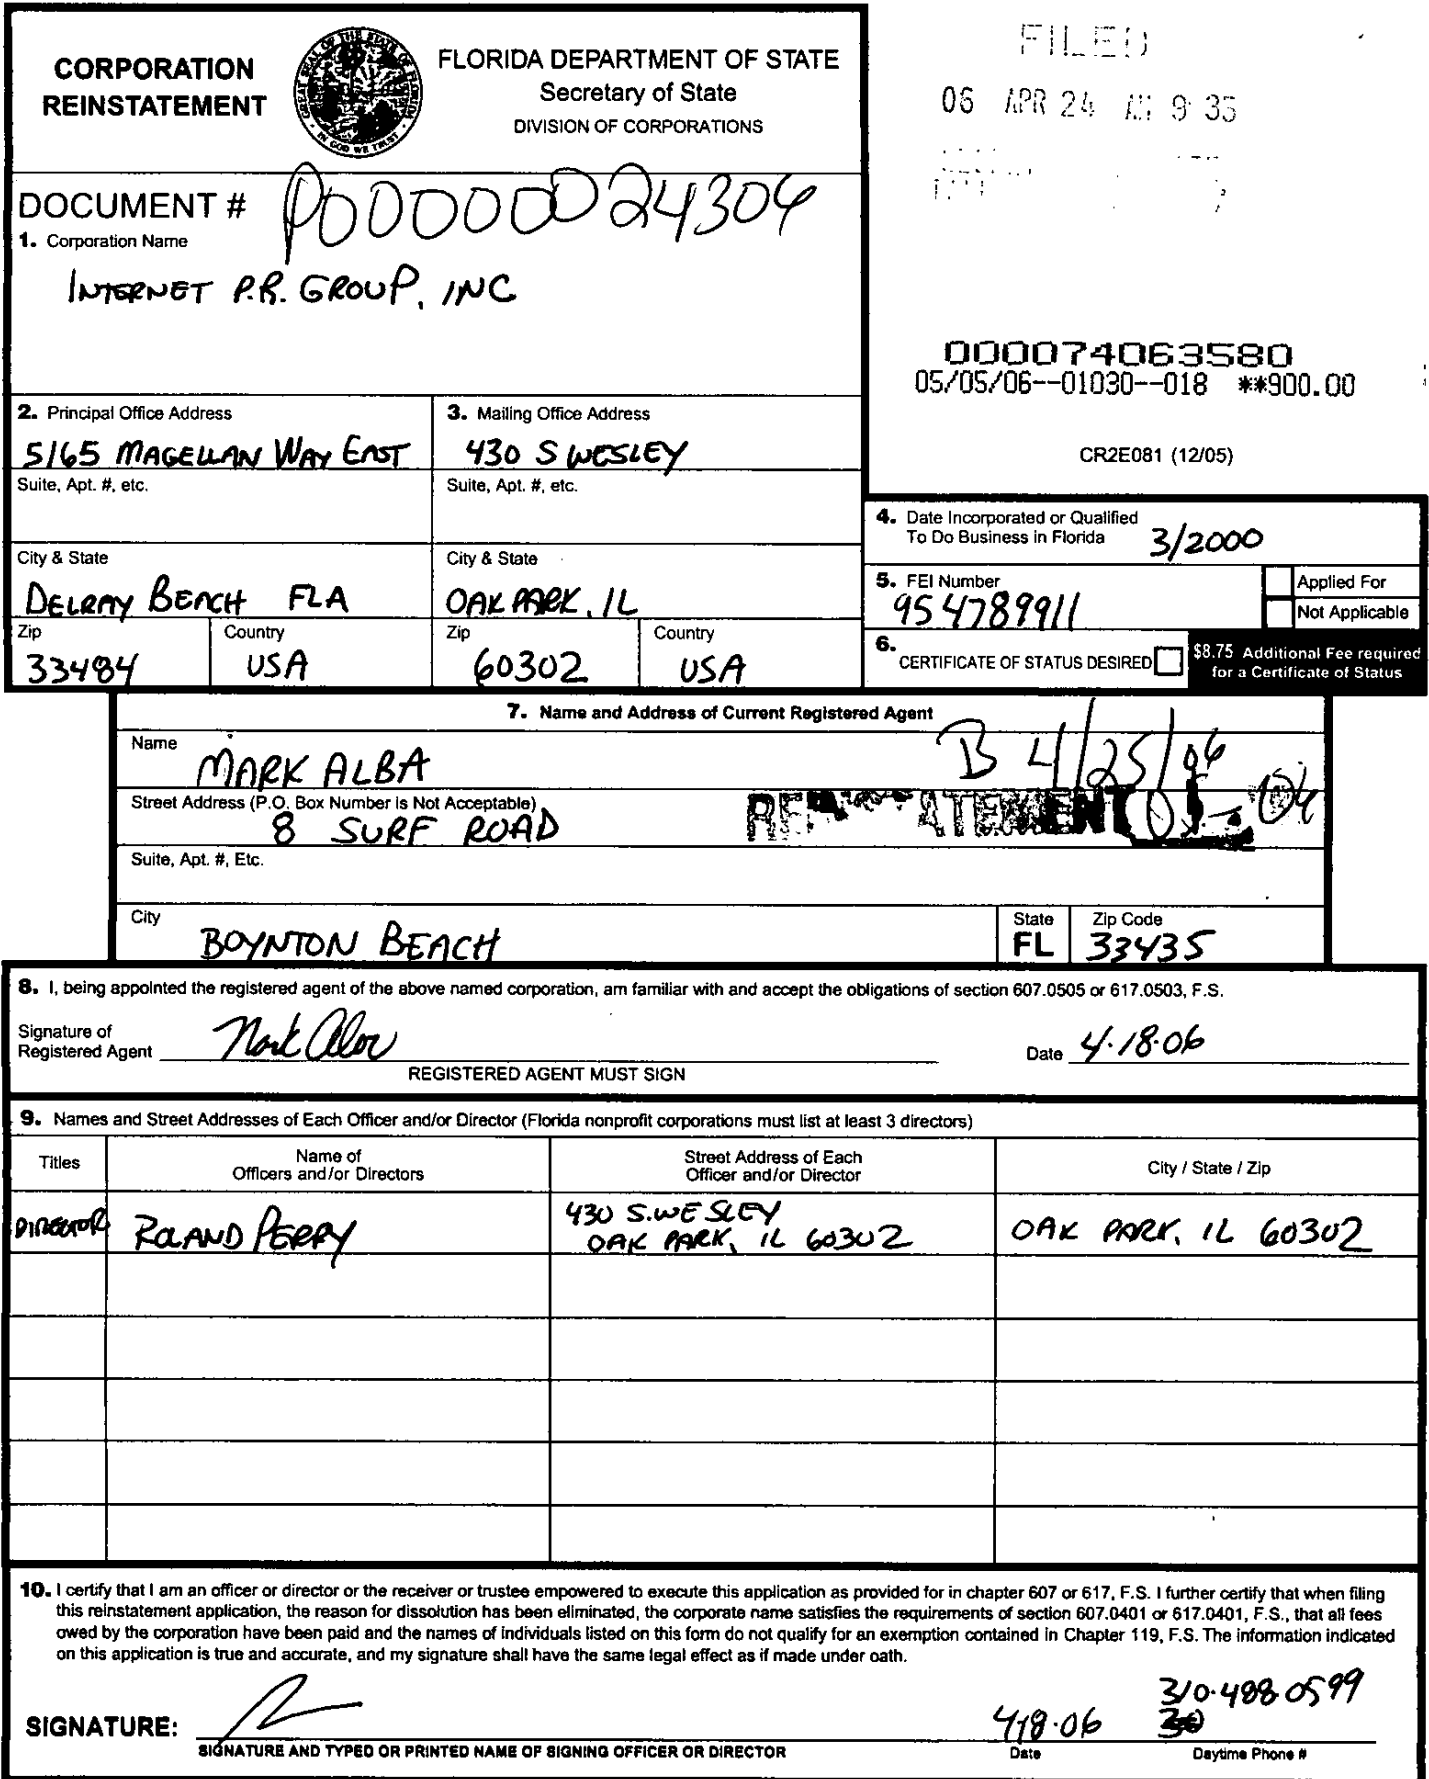 CORPORATION
REINSTATEMENT
GREAT SEAL OF THE STATE OF FLORIDA
IN GOD WE TRUST
FLORIDA DEPARTMENT OF STATE
Secretary of State
DIVISION OF CORPORATIONS
FILED
06 APR 24 AM 9:35
DOCUMENT # P00000024304
1. Corporation Name
INTERNET P.R. GROUP, INC
0000074063580
05/05/06--01030--018 **900.00
CR2E081 (12/05)
2. Principal Office Address
5165 MAGELLAN WAY EAST
Suite, Apt. #, etc.
City & State
DELRAY BEACH FLA
Zip
33484
Country
USA
3. Mailing Office Address
430 S WESLEY
Suite, Apt. #, etc.
City & State
OAK PARK, IL
Zip
60302
Country
USA
4. Date Incorporated or Qualified
To Do Business in Florida 3/2000
5. FEI Number
954789911
Applied For
Not Applicable
6. CERTIFICATE OF STATUS DESIRED
$8.75 Additional Fee required
for a Certificate of Status
7. Name and Address of Current Registered Agent
Name
MARK ALBA
B 4/25/06
Street Address (P.O. Box Number Is Not Acceptable)
8 SURF ROAD
REINSTATEMENT
Suite, Apt. #, Etc.
City
BOYNTON BEACH
State
FL
Zip Code
33435
8. I, being appointed the registered agent of the above named corporation, am familiar with and accept the obligations of section 607.0505 or 617.0503, F.S.
Signature of
Registered Agent Mark Alba
Date 4.18.06
REGISTERED AGENT MUST SIGN
9. Names and Street Addresses of Each Officer and/or Director (Florida nonprofit corporations must list at least 3 directors)
Titles
Name of
Officers and/or Directors
Street Address of Each
Officer and/or Director
City / State / Zip
DIRECTOR
ROLAND PERRY
430 S. WESLEY
OAK PARK, IL 60302
OAK PARK, IL 60302
10. I certify that I am an officer or director or the receiver or trustee empowered to execute this application as provided for in chapter 607 or 617, F.S. I further certify that when filing
this reinstatement application, the reason for dissolution has been eliminated, the corporate name satisfies the requirements of section 607.0401 or 617.0401, F.S., that all fees
owed by the corporation have been paid and the names of individuals listed on this form do not qualify for an exemption contained in Chapter 119, F.S. The information indicated
on this application is true and accurate, and my signature shall have the same legal effect as if made under oath.
SIGNATURE:
4.18.06
310.488.0599
SIGNATURE AND TYPED OR PRINTED NAME OF SIGNING OFFICER OR DIRECTOR
Date
Daytime Phone #